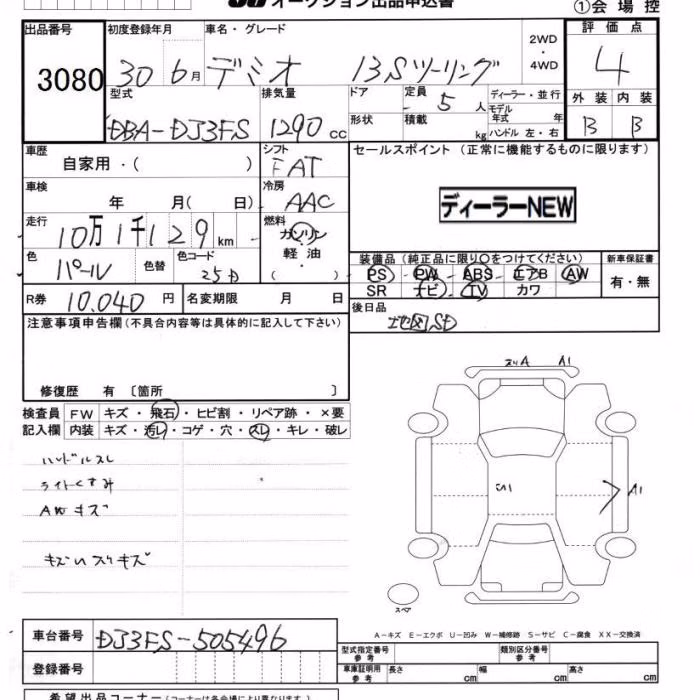 オークション出品申込書
①会場控
出品番号 3080
初度登録年月 30 6月
車名・グレード デミオ 13Sツーリング
2WD・4WD
評価点 4
外装 B 内装 B
型式 DBA-DJ3FS
排気量 1290 cc
ドア 形状
定員 5 人
積載 kg
ディーラー・並行
モデル年式 年
ハンドル 左・右
車歴 自家用・( )
シフト FAT
セールスポイント (正常に機能するものに限ります)
ディーラーNEW
車検 年 月( 日)
冷房 AAC
走行 10万1千129 km
燃料 ガソリン 軽油 ・( )
色 パール 色替
色コード 25D
装備品 (純正品に限り○をつけてください)
PS PW ABS エアB AW
SR ナビ TV カワ
新車保証書 有・無
R券 10,040 円
名変期限 月 日
後日品 地図SD
注意事項申告欄 (不具合内容等は具体的に記入して下さい)
修復歴 有 〔箇所 〕
検査員記入欄
FW キズ・飛石・ヒビ割・リペア跡・×要
内装 キズ・汚レ・コゲ・穴・スレ・キレ・破レ
ハンドルスレ
ライトくすみ
AWキズ
A1
S1
A1
スペア
A-キズ E-エクボ U-凹み W-補修跡 S-サビ C-腐食 XX-交換済
車台番号 DJ3FS-505496
登録番号
型式指定番号 参考
類別区分番号 参考
車庫証明用 参考 長さ cm 幅 cm 高さ cm
希望出品コーナー (コーナーは各会場により異なります。)